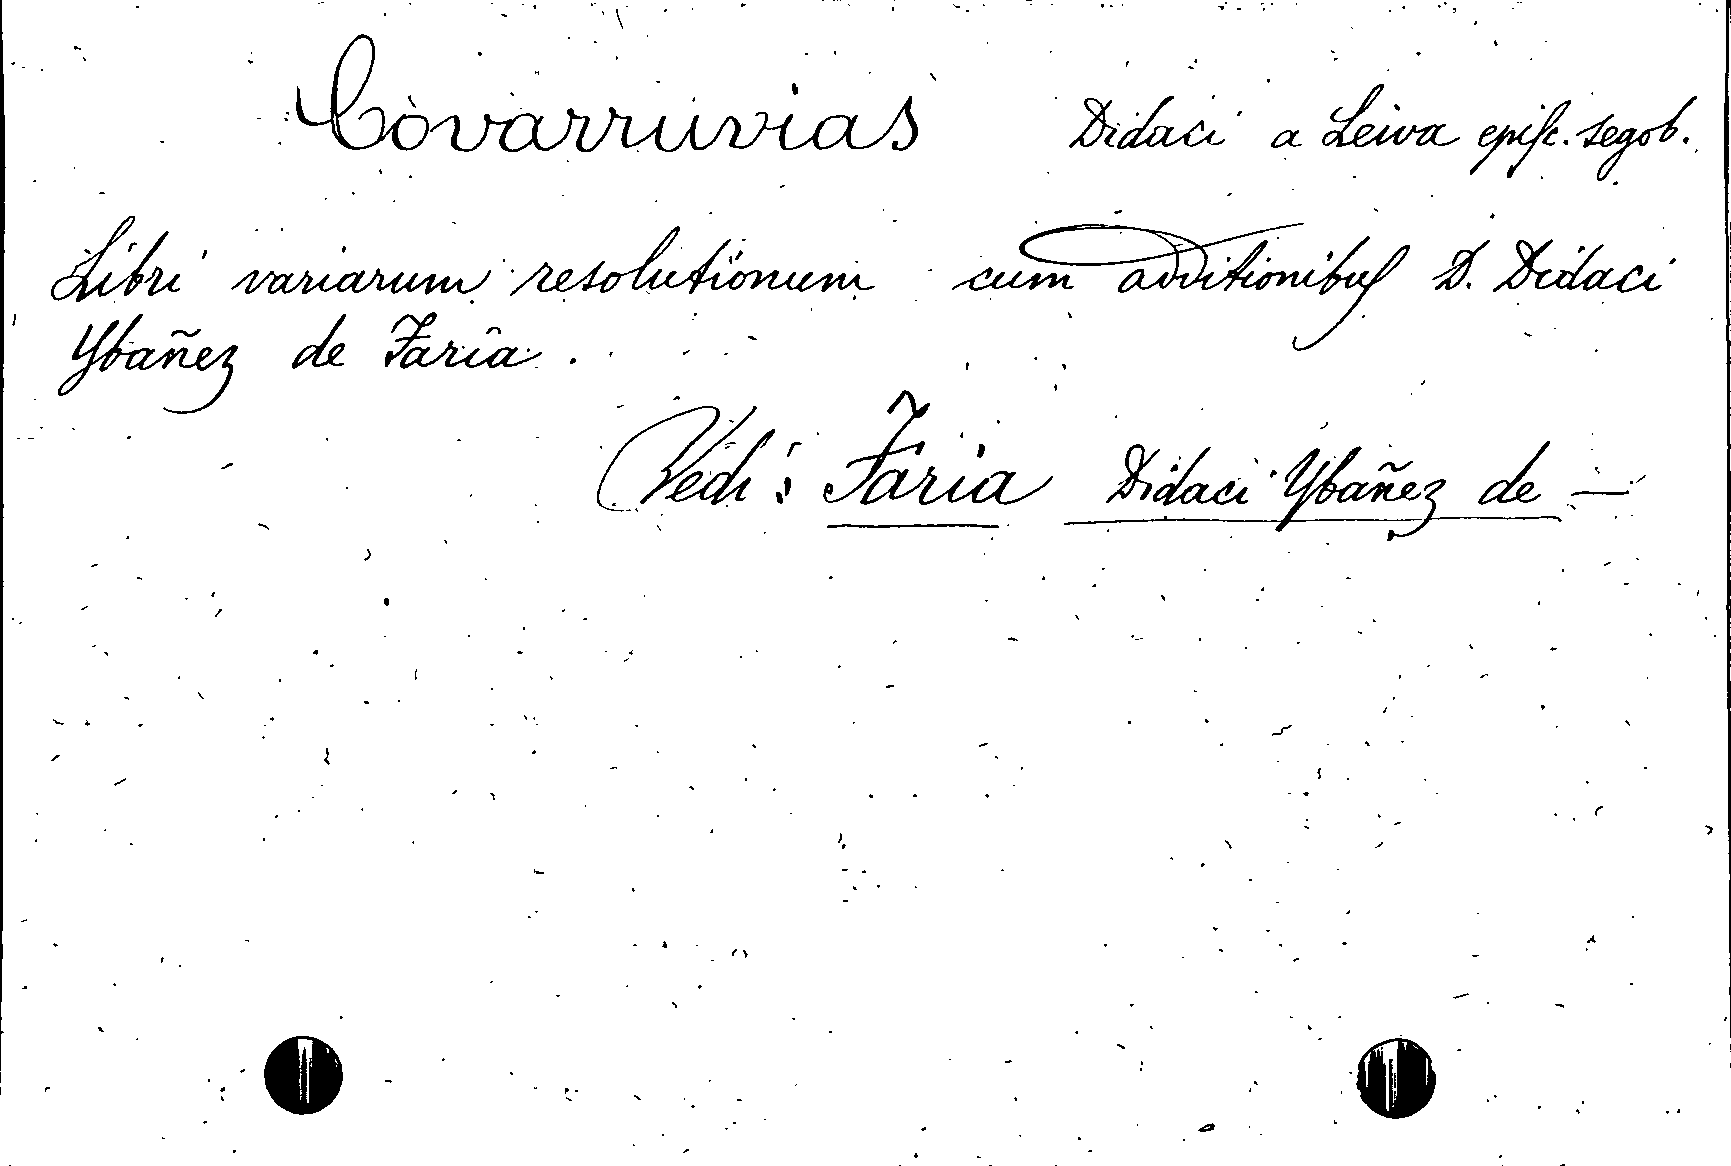 Covarruvias Didaci a Leiva episc. segob.
Libri variarum resolutionum cum additionibus D. Didaci
Ybañez de Faria.
Vedi: Faria Didaci Ybañez de —